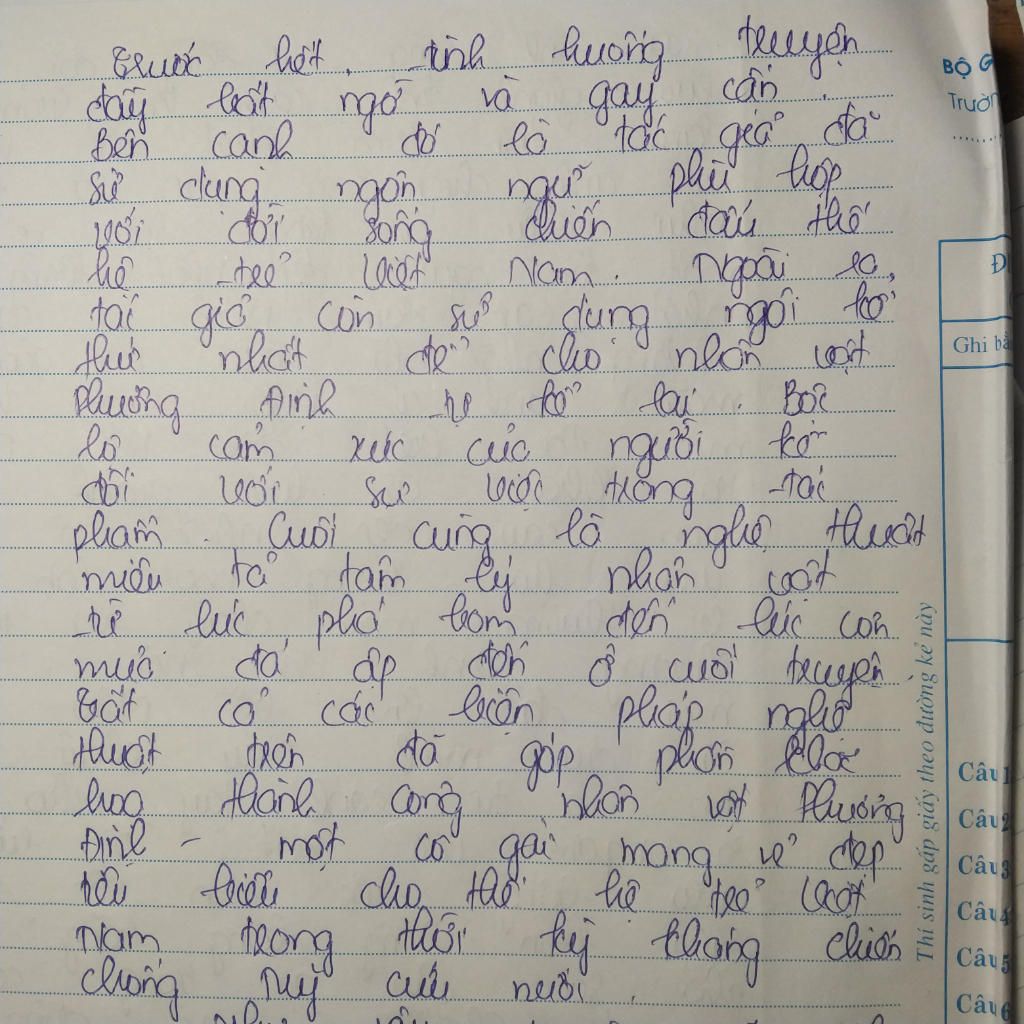 Trước hết, tình huống truyện
đầy bất ngờ và gay cấn.
Bên cạnh đó là tác giả đã
sử dụng ngôn ngữ phù hợp
với đời sống chiến đấu thế
hệ trẻ Việt Nam. Ngoài ra,
tác giả còn sử dụng ngôi kể
thứ nhất để cho nhân vật
Phương Định tự kể lại. Bộc
lộ cảm xúc của người kể
đối với sự việc trong tác
phẩm. Cuối cùng là nghệ thuật
miêu tả tâm lý nhân vật
từ lúc phá bom đến lúc cơn
mưa đá ập đến ở cuối truyện.
Tất cả các biện pháp nghệ
thuật trên đã góp phần khắc
họa thành công nhân vật Phương
Định - một cô gái mang vẻ đẹp
tiêu biểu cho thế hệ trẻ Việt
Nam trong thời kỳ kháng chiến
chống Mỹ cứu nước.
BỘ G
Trườn
Đ
Ghi bằ
Thí sinh gấp giấy theo đường kẻ này
Câu 1
Câu 2
Câu 3
Câu 4
Câu 5
Câu 6